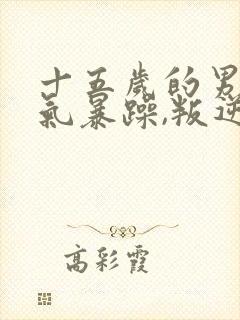 十五歲的男
氣暴躁,叛逆
高彩霞